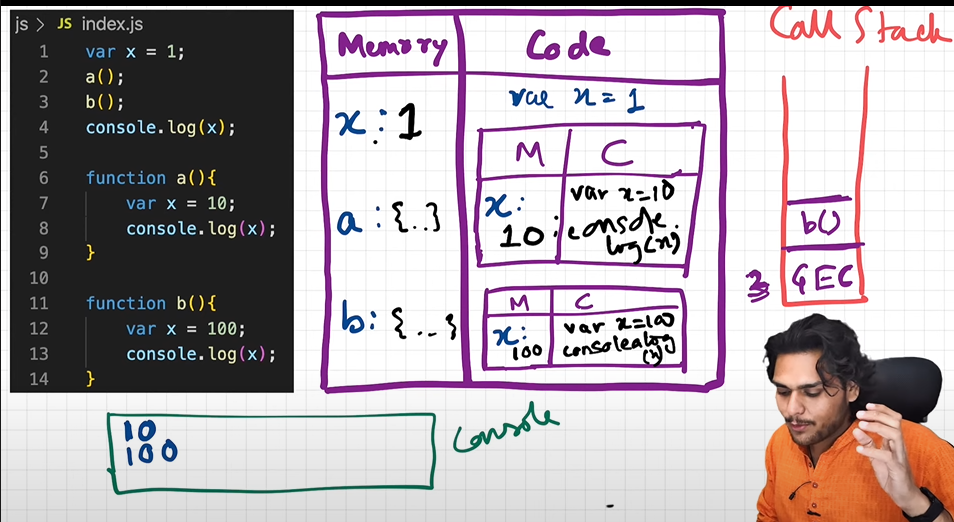 js > JS index.js
1 var x = 1;
2 a();
3 b();
4 console.log(x);
5
6 function a(){
7 var x = 10;
8 console.log(x);
9 }
10
11 function b(){
12 var x = 100;
13 console.log(x);
14 }
Memory
Code
x : 1
a : {..}
b : {..}
var x = 1
M
C
x:
10
var x=10
console.
log(x)
M
C
x:
100
var x=100
console.log
(x)
Call Stack
b()
GEC
10
100
Console